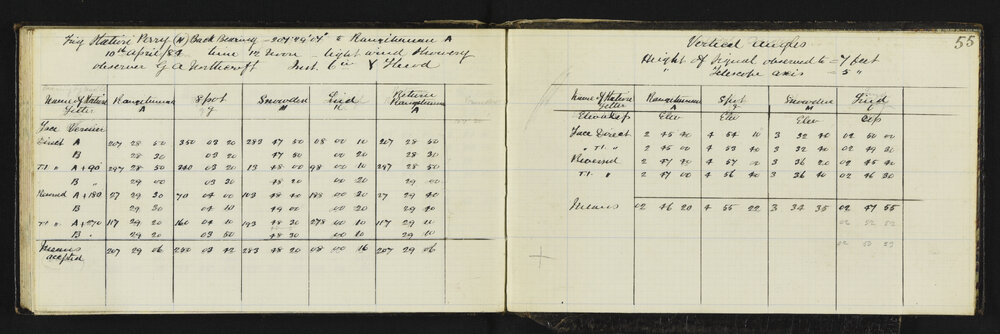 Trig Station Perry (H) Back Bearing = 207°29'04" to Rangitumau A
10th April/83 time 12 Noon light wind Showery
observer G A Northcroft Inst. 6 in
Name of Station Rangitumau Spot Snowden Lind Return Rangitumau
Letter A g M K A
Face Vernier
Direct A 207 28 50 350 03 20 283 47 50 08 00 10 207 28 50
B 28 30 03 20 47 50 00 20 28 30
A+90° 297 28 50 13 48 00 98 00 10 297 28 50
B " 29 00 03 20 48 20 00 20 29 00
Reversed A+180 27 29 30 70 04 00 103 48 40 188 00 20 27 29 40
B 29 30 04 10 49 00 00 20 29 40
A+270 117 29 20 160 04 10 193 48 30 278 00 10 117 29 10
B 29 20 03 50 48 30 00 20 29 10
Means accepted 207 29 06 283 48 20 08 00 16 207 29 06
55
Vertical Angles
Height of Signal observed to = 7 feet
" Telescope axis = 5 "
Name of Station Rangitumau Spot Snowden Lind
Letter A g M
Elev or dep Elev Elev Elev Dep
Face Direct 2 45 40 4 54 10 3 32 40 02 50 00
" " 2 45 00 4 53 40 3 32 40 02 49 30
Reversed 2 47 40 4 57 3 36 20 02 45 40
" 2 47 00 4 56 40 3 36 40 02 46 30
Means 2 46 20 4 55 22 3 34 35 02 47 55
02 52 52
02 53